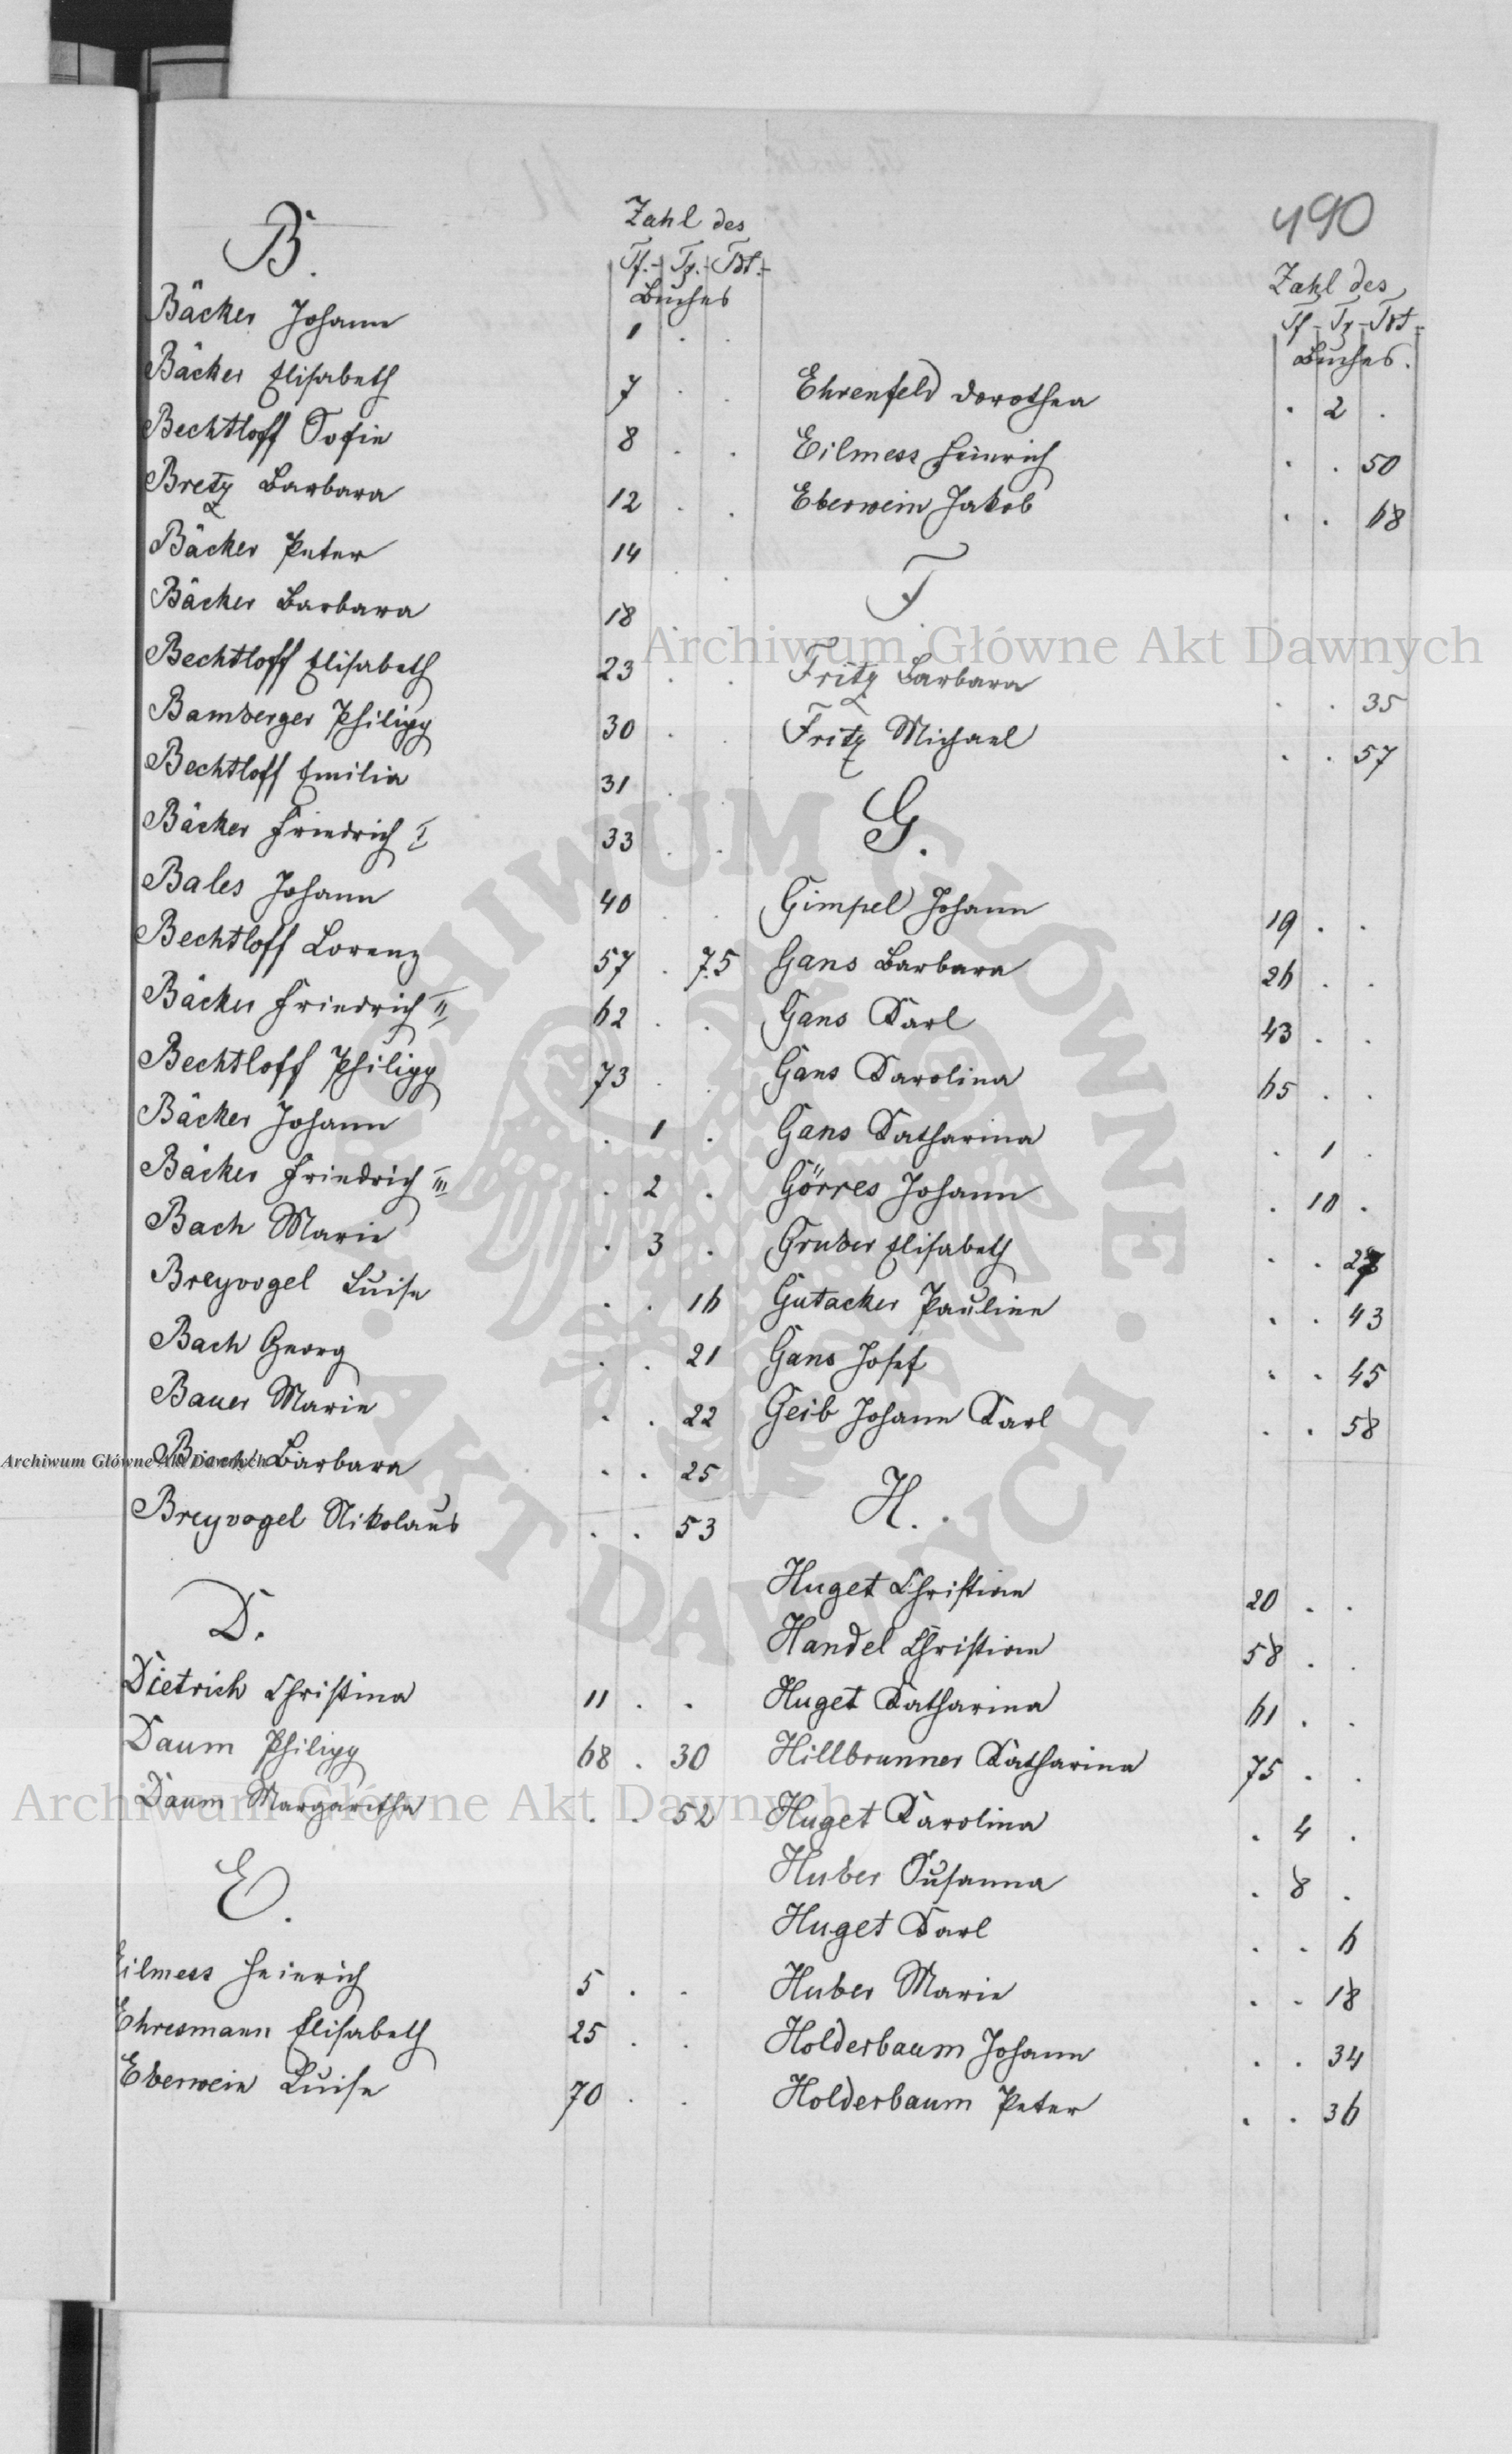 490
B.
Zahl des
Tf.- Tr.- Tdt.-
Buches
Bäcker Johann 1 . .
Bäcker Elisabeth 7 . .
Bechtloff Sofie 8 . .
Bretz Barbara 12 . .
Bäcker Peter 14 . .
Bäcker Barbara 18 . .
Bechtloff Elisabeth 23 . .
Bamberger Philipp 30 . .
Bechtloff Emilia 31 . .
Bäcker Friedrich I 33 . .
Bales Johann 40 . .
Bechtloff Lorenz 57 . 75
Bäcker Friedrich II 62 . .
Bechtloff Philipp 73 . .
Bäcker Johann . 1 .
Bäcker Friedrich III . 2 .
Bach Marie . 3 .
Breyvogel Luise . . 16
Bach Georg . . 21
Bauer Marie . . 22
Barbara . . 25
Breyvogel Nikolaus . . 53
D.
Dietrich Christina 11 . .
Daum Philipp 68 . 30
Daum Margaretha . . 52
E.
Eilmess Heinrich 5 . .
Ehresmann Elisabeth 25 . .
Eberwein Luise 70 . .
Zahl des
Tf - Tr - Tdt -
Buches.
Ehrenfeld Dorothea . 2 .
Eilmess Heinrich . . 50
Eberwein Jakob . . 68
F.
Fritz Barbara . . 35
Fritz Michael . . 57
G.
Gimpel Johann 19 . .
Gans Barbara 26 . .
Gans Karl 43 . .
Gans Karolina 65 . .
Gans Katharina . 1 .
Görres Johann . 10 .
Gruber Elisabeth . . 27
Gutacker Pauline . . 43
Gans Josef . . 45
Geib Johann Karl . . 58
H.
Huget Christine 20 . .
Handel Christine 58 . .
Huget Katharina 61 . .
Hillbrunner Katharina 75 . .
Huget Karolina . 4 .
Huber Susanna . 8 .
Huget Karl . . 6
Huber Marie . . 18
Holderbaum Johann . . 34
Holderbaum Peter . . 36
Archiwum Główne Akt Dawnych
Archiwum Główne Akt Dawnych
Archiwum Główne Akt Dawnych
ARCHIWUM GŁÓWNE . AKT DAWNYCH .